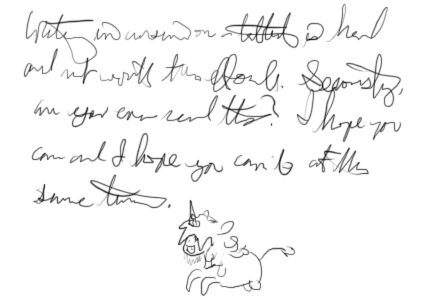 Writing in cursive on a tablet is hard
and not worth the effort. Seriously,
can you even read this? I hope you
can and I hope you can't at the
same time.